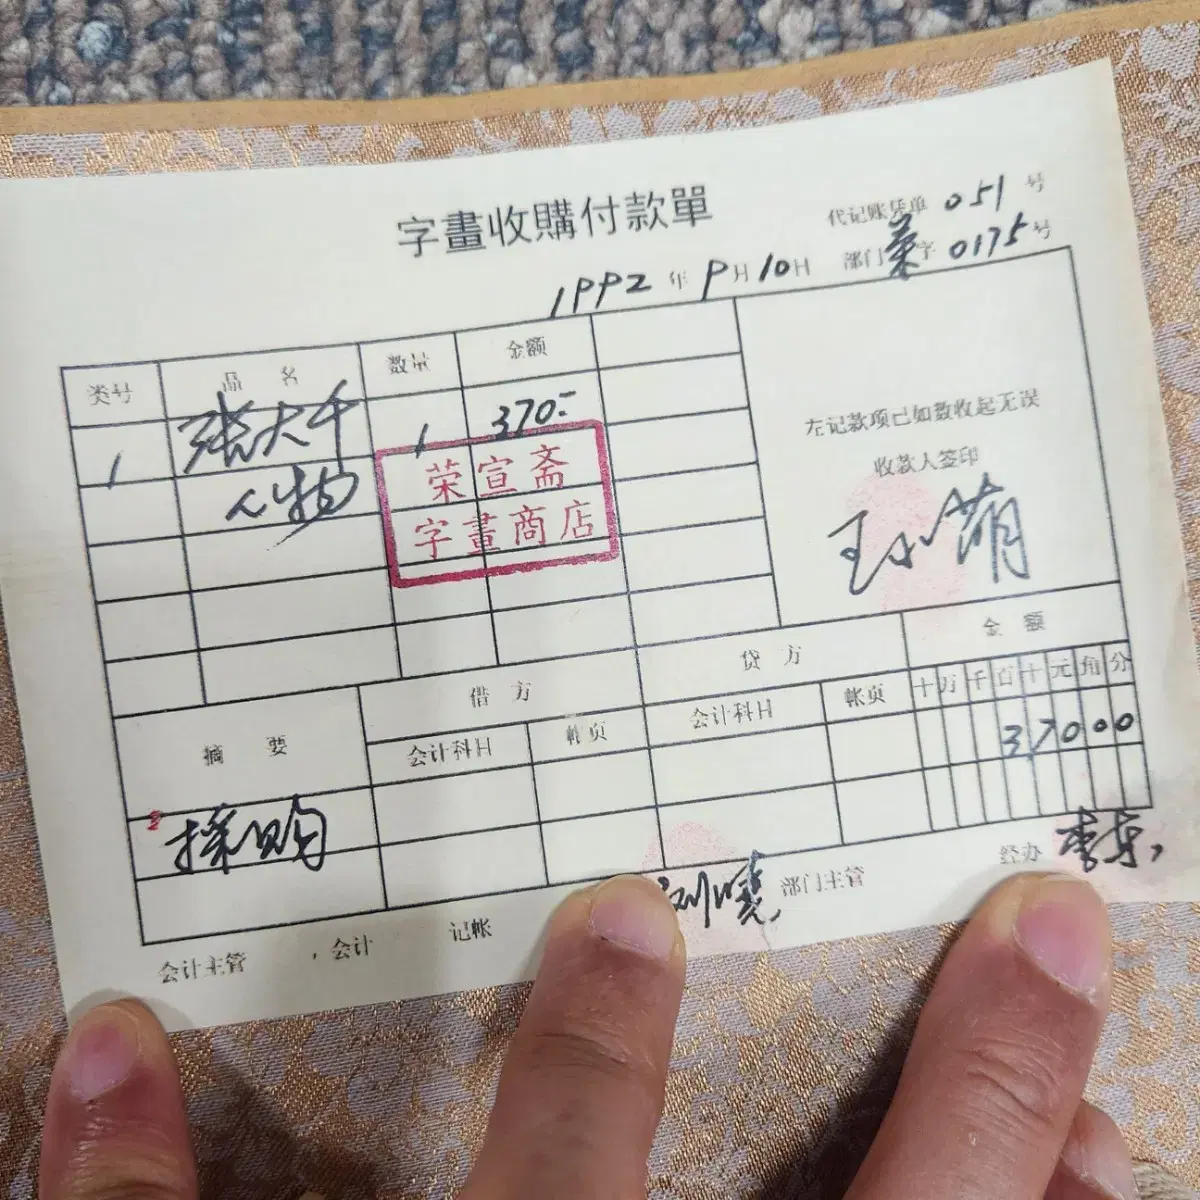 字畫收購付款單
代记账凭单 051 号
1992 年 9 月 10 日 部门 荣 字 0175 号
类号 品名 数量 金额
1 张大千 1 370.-
人物
荣宣斋
字畫商店
左记款项已如数收起无误
收款人签印
王小萌
摘要 借方 贷方 金额
会计科目 帐页 会计科目 帐页 十 万 千 百 十 元 角 分
3 7 0 0 0
採购
会计主管 会计 记帐 刘晓 部门主管 经办 李东